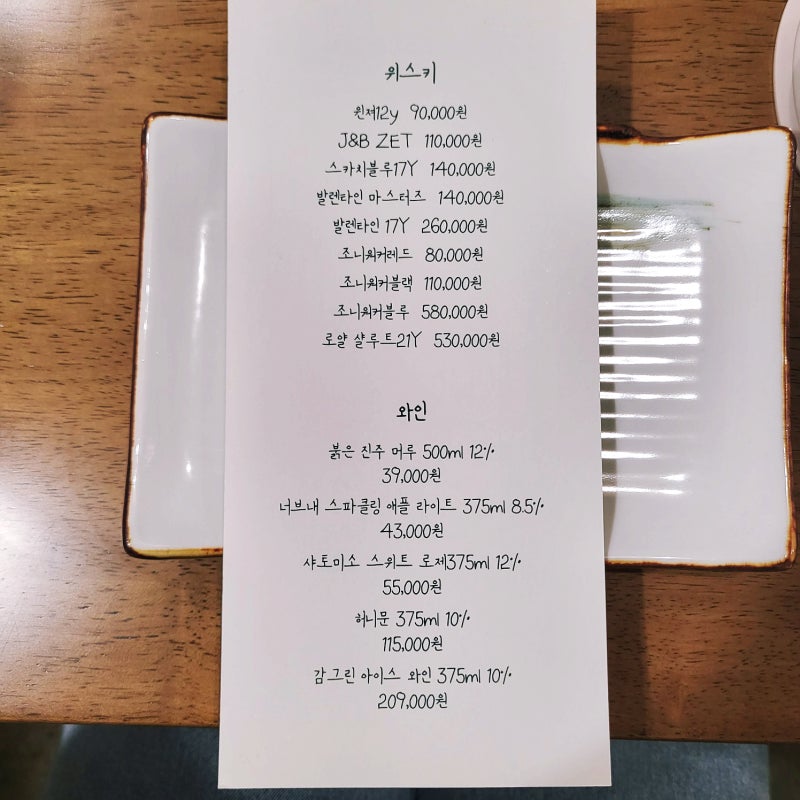 위스키
윈저12y 90,000원
J&B ZET 110,000원
스카치블루17Y 140,000원
발렌타인 마스터즈 140,000원
발렌타인 17Y 260,000원
조니워커레드 80,000원
조니워커블랙 110,000원
조니워커블루 580,000원
로얄 샬루트21Y 530,000원
와인
붉은 진주 머루 500ml 12%
39,000원
너브내 스파클링 애플 라이트 375ml 8.5%
43,000원
샤토미소 스위트 로제375ml 12%
55,000원
허니문 375ml 10%
115,000원
감그린 아이스 와인 375ml 10%
209,000원